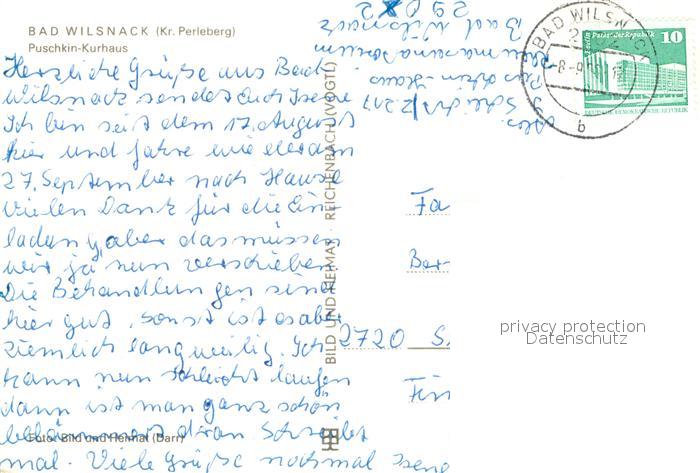 BAD WILSNACK (Kr. Perleberg)
Puschkin-Kurhaus
Herzliche Grüße aus Bad
Wilsnack sendet Euch Irene
Ich bin seit dem 17. August
hier und fahre wieder am
27. September nach Hause
Vielen Dank für die Ein-
ladung, aber das müssen
wir ja nun verschieben.
Die Behandlungen sind
hier gut, sonst ist es aber
ziemlich langweilig. Ich
kann nun schlecht laufen
dann ist man ganz schön
dran. Schreibt
mal. Viele Grüße nochmal Irene
Foto: Bild und Heimat (Darr)
BILD UND HEIMAT REICHENBACH (VOGTL)
Abs.
Puschkin-Haus
Bad Wilsnack
2902
BAD WILSNACK
b
Palast der Republik
10
DEUTSCHE DEMOKRATISCHE REPUBLIK
Fa
Ber
2720 S
privacy protection
Datenschutz